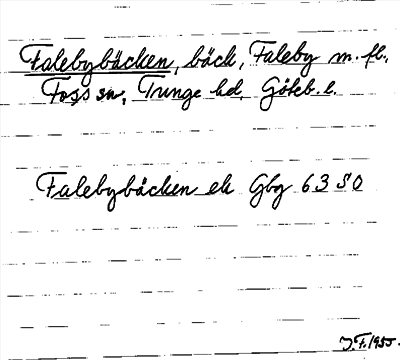 Falebybäcken, bäck, Faleby m. fl.
Foss sn, Tunge hd, Göteb. l.
Falebybäcken ek Gbg 63 SO
J.F. 1955.